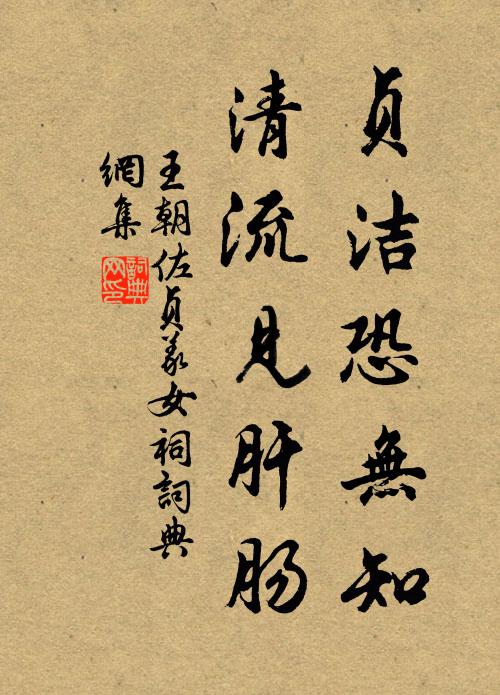 贞洁恐無知
清流見肝肠
王朝佐贞義女祠詞典
網集
詞典
网印